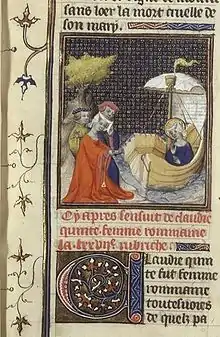 sans loer la mort cruelle de
son mary.
Cy apres sensuit de claudie
quinte femme rommaine
la rubriche
Claudie quin
te fut femme
rommaine
toutesuoies
de quelz pa